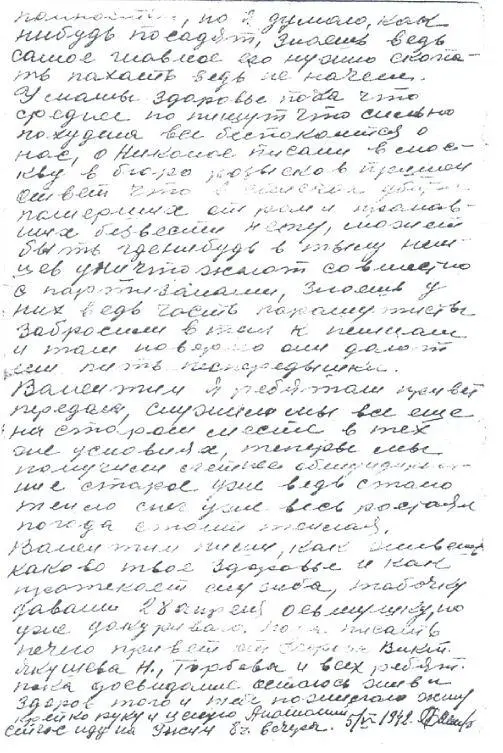 но я думаю, как
нибудь посадят, знаешь ведь
самое главное его нужно скопа-
ть пахать ведь не начем.
У мамы здоровье пока что
среднее но пишут что сильно
похудела все беспокоится о
нас, о Николае писали в мос-
кву в бюро розысков пришел
ответ что в списках убитых
померших от ран и пропав-
ших безвести нету, может
быть где нибудь в тылу нем-
цев уничтожают совместно
с партизанами, знаешь у
них ведь часть парашютисты
забросили в тыл к немцам
и там наверно они дают
им пить без передышки.
Валентин я ребятам привет
передал, служим мы все еще
на старом месте в тех
же условиях, теперь мы
получили летнее обмундирова-
ние старое уже ведь стало
тепло снег уже весь растаял
погода стоит теплая.
Валентин пиши, как живешь
каково твое здоровье и как
протекает служба, табачку
давали 28 апреля осьмушку, но
уже докуриваю. пока писать
нечего привет от
Якушева Н., Горбова и всех ребят.
пока досвидание остаюсь жив и
здоров того и тебе пожелаю жму
крепко руку и целую Анатолий
сейчас иду на ужин 8 ч. вечера. 5/V 1942.